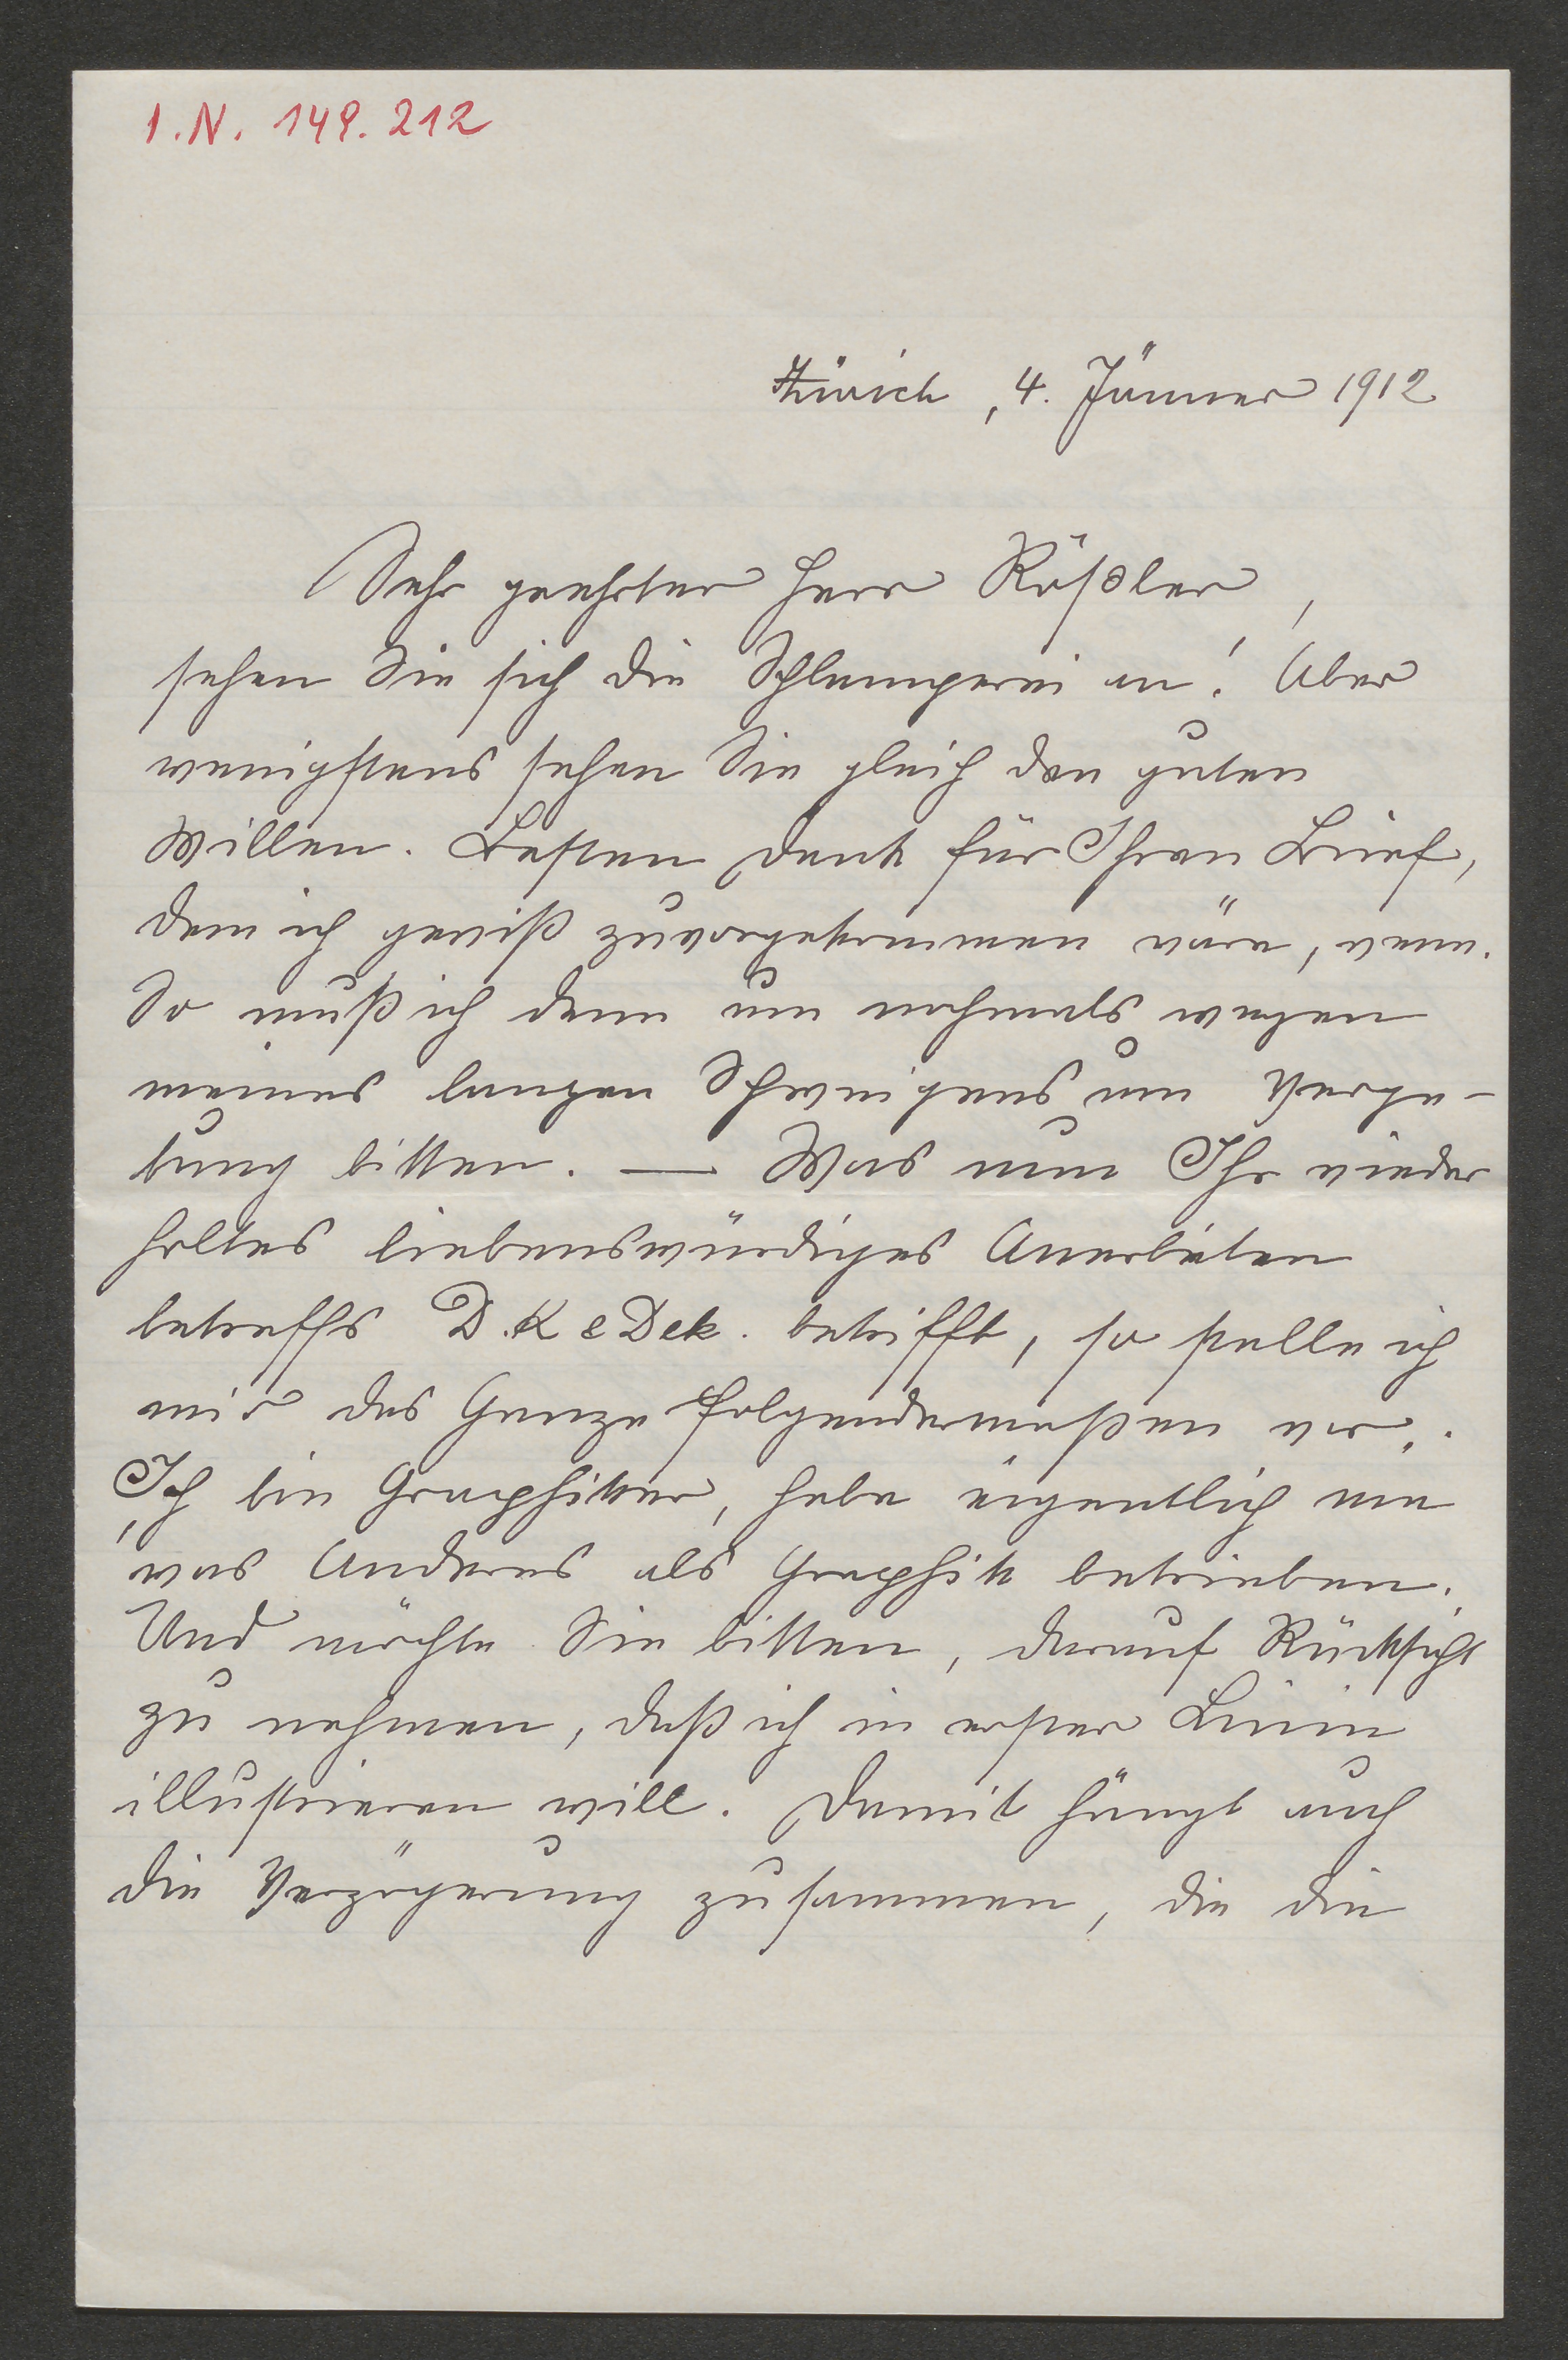 I.N. 149.212
Zürich, 4. Jänner 1912
Sehr geehrter Herr Rößler,
sehen Sie sich die Schlamperei an! Aber
wenigstens sehen Sie gleich den guten
Willen. Besten Dank für Ihren Brief,
dem ich gewiß zuvorgekommen wäre, wenn.
So muß ich denn um nochmals wegen
meines langen Schweigens um Verge-
bung bitten. — Was nun Ihr wieder
holtes liebenswürdiges Anerbieten
betreffs D. K & Dek. betrifft, so stelle ich
mir das Ganze folgendermaßen vor:
Ich bin Graphiker, habe eigentlich nie
was Anderes als Graphik betrieben.
Und möchte Sie bitten, darauf Rücksicht
zu nehmen, daß ich in erster Linie
illustrieren will. Damit hängt auch
die Verzögerung zusammen, die die